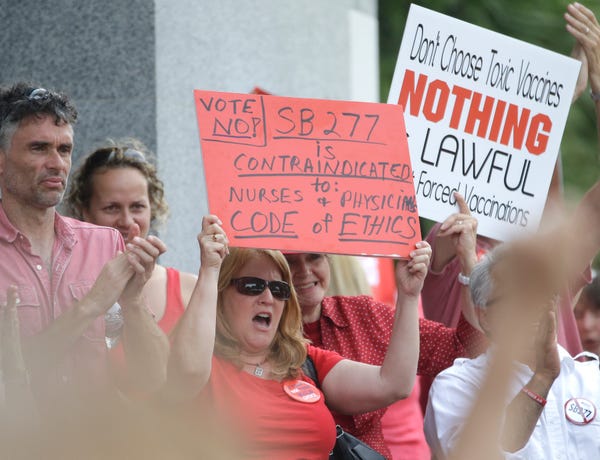 VOTE NO!
SB 277
is
CONTRAINDICATED
to:
NURSES + PHYSICIAN
CODE of ETHICS
Don't Choose Toxic Vaccines
NOTHING
LAWFUL
Forced Vaccinations
SB277